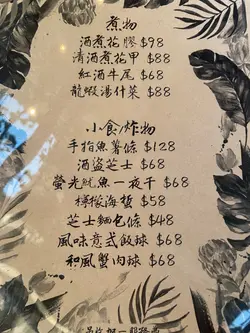 煮物
酒煮花膠 $98
清酒煮花甲 $88
紅酒牛尾 $68
龍蝦湯什菜 $88
小食/炸物
手指魚薯條 $128
酒盜芝士 $68
螢光魷魚一夜干 $68
檸檬海蜇 $58
芝士麵包條 $48
風味意式飯球 $68
和風蟹肉球 $68